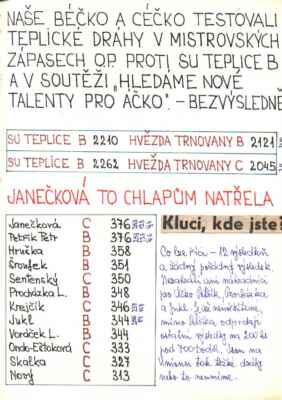 NAŠE BÉČKO A CÉČKO TESTOVALI
TEPLICKÉ DRÁHY V MISTROVSKÝCH
ZÁPASECH OP PROTI SU TEPLICE B
A V SOUTĚŽI „HLEDÁME NOVÉ
TALENTY PRO ÁČKO". - BEZVÝSLEDNĚ
SU TEPLICE B 2210 HVĚZDA TRNOVANY B 2121
SU TEPLICE B 2262 HVĚZDA TRNOVANY C 2045
JANEČKOVÁ TO CHLAPŮM NATŘELA
Janečková C 376
Petrik Petr B 376
Hruška B 358
Šroufek B 351
Sentenský C 350
Procházka L. B 348
Krejčík C 346
Jukl B 344
Voráček L. B 344
C 333
Skalka C 327
Nový C 313
Kluci, kde jste!
Co lze říci - 12 výsledků
a žádný pořádný výsledek.
pro Áčko Petrik, Procházka
a Jukl
mimo
ostatní výsledky na 200 HS
pod 700 bodů. Jsou na
vinně tak těžké dráhy
nebo to neumíme.